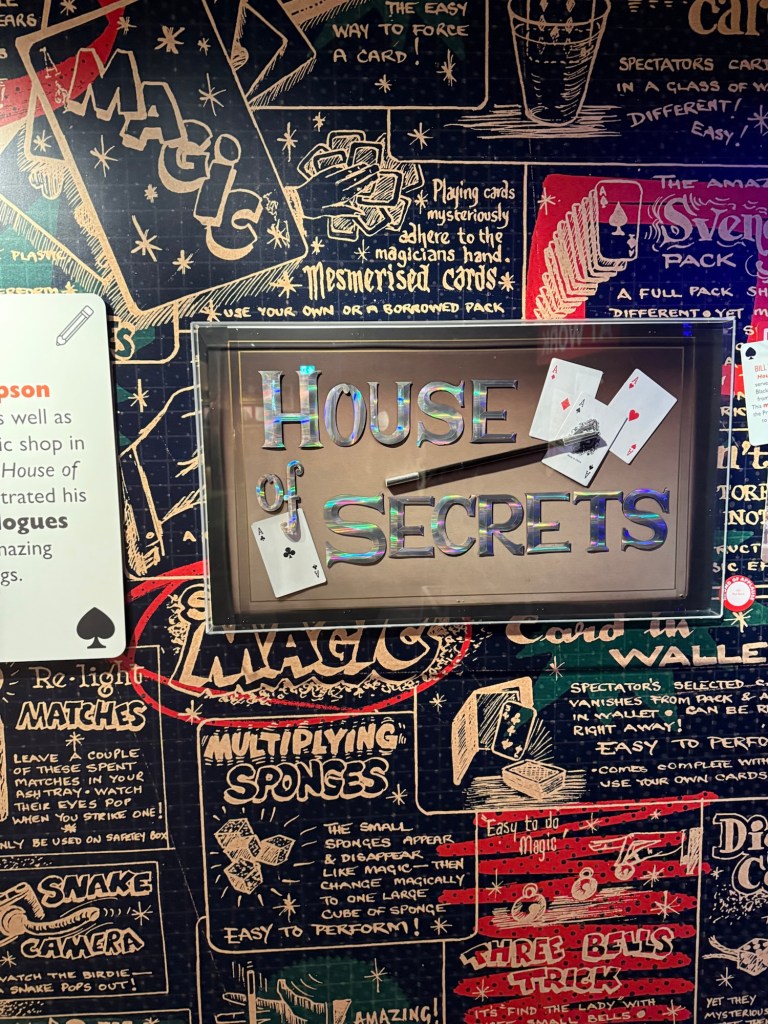 THE EASY
WAY TO FORCE
A CARD!
SPECTATORS CARD
IN A GLASS OF
DIFFERENT!
EASY!
MAGIC
Playing cards
mysteriously
adhere to the
magicians hand.
Mesmerised cards
USE YOUR OWN OR A BORROWED PACK
PLASTIC
THE
PACK
A FULL PACK
DIFFERENT
A
A
HOUSE
of
SECRETS
A
A
A
A
A
pson
s well as
ic shop in
House of
trated his
logues
mazing
gs.
BILL
MAGIC
Card in
WALLE
SPECTATOR'S SELECTED
VANISHES FROM PACK &
IN WALLET • CAN BE
RIGHT AWAY!
EASY TO PERFO
• COMES COMPLETE WITH
USE YOUR OWN CARDS
Re-light
MATCHES
LEAVE A COUPLE
OF THESE SPENT
MATCHES IN YOUR
ASH TRAY • WATCH
THEIR EYES POP
WHEN YOU STRIKE ONE!
ONLY BE USED ON SAFETY BOX
MULTIPLYING
SPONGES
THE SMALL
SPONGES APPEAR
& DISAPPEAR
LIKE MAGIC — THEN
CHANGE MAGICALLY
TO ONE LARGE
CUBE OF SPONGE
EASY TO PERFORM!
"Easy to do
Magic"
THREE BELLS
TRICK
IT'S FIND THE LADY WITH
SMALL BELLS •
SNAKE
CAMERA
WATCH THE BIRDIE —
A SNAKE POPS OUT!
AMAZING!
YET THEY